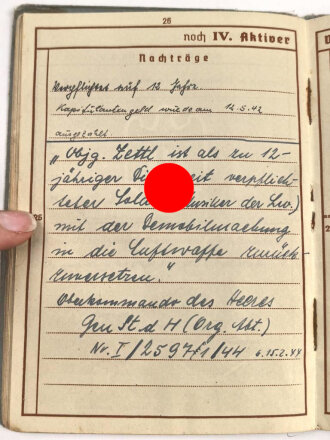 26
noch IV. Aktiver
Nachträge
Verpflichtet auf 12 Jahre
Kapitulantengeld wurde am 12.5.42
ausgezahlt
„Obfg. Zettl ist als zu 12-
jähriger Dienstzeit verpflich-
teter Soldat (Funker der Lw.)
mit der Demobilmachung
in die Luftwaffe zurück-
zuversetzen."
Oberkommando des Heeres
Gen St. d H (Org. Abt.)
Nr. I/2597/1/44 6.15.2.44
25